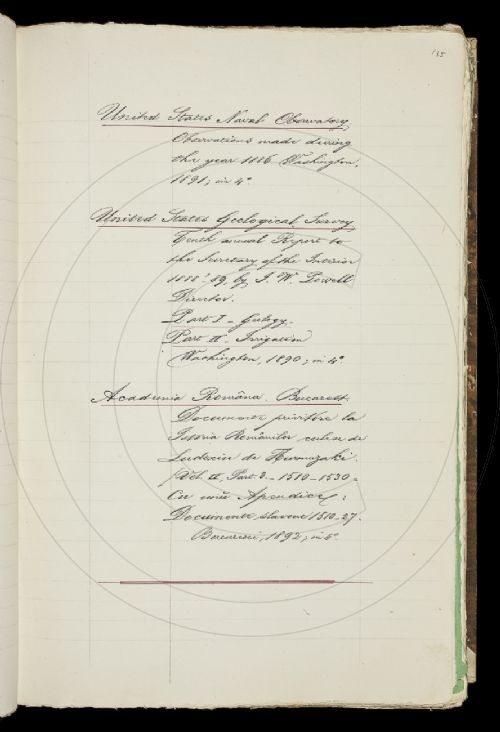 135
United States Naval Observatory
Observations made during
the year 1886 Washington,
1891; in 4º
United States Geological Survey
Tenth annual Report to
the Secretary of the Interior
1888-89, by J. W. Powell
Director.
Part I - Geology.
Part II - Irrigation
Washington, 1890; in 4º
Academia Româna. Bucarest.
Documente privitóre la
Istoria Românilor, culese de
Eudoxiu de Hurmuzaki.
Vol. II, Part. 3. - 1510-1530.
Cu unŭ Apendice:
Documente slavone 1510-27.
Bucuresci, 1892; in 4º